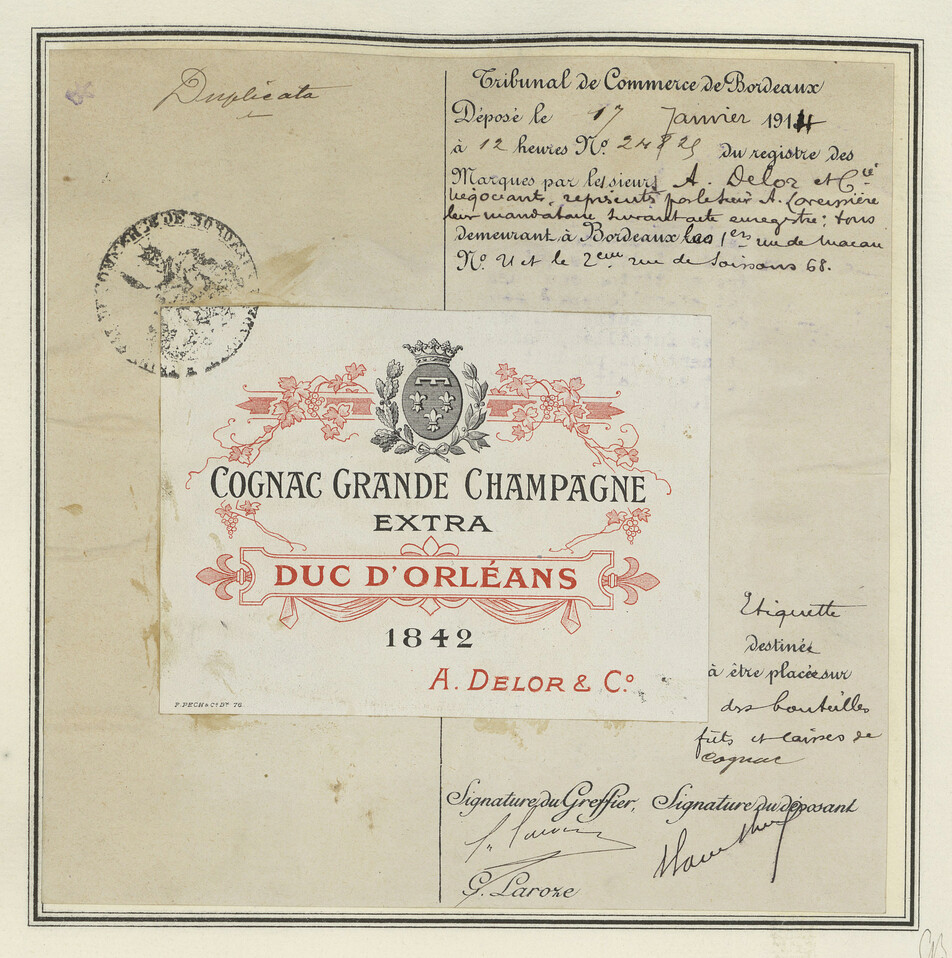 Duplicata
Tribunal de Commerce de Bordeaux
Déposé le 17 Janvier 1914
à 12 heures No. du registre des
Marques par les sieurs A. Delor et Cie
négociants, représentés par le sieur A.
leur mandataire suivant acte enregistré; tous
demeurant à Bordeaux les 1er rue de Macau
No. et le 2eme rue de Soissons 68.
DE BORDEAUX
COGNAC GRANDE CHAMPAGNE
EXTRA
DUC D'ORLÉANS
1842
A. DELOR & Co.
F. PECH & Co. Bx 76
Etiquette
destinée
à être placée sur
des bouteilles
fûts et caisses de
cognac
Signature du Greffier, Signature du déposant
G. Laroze